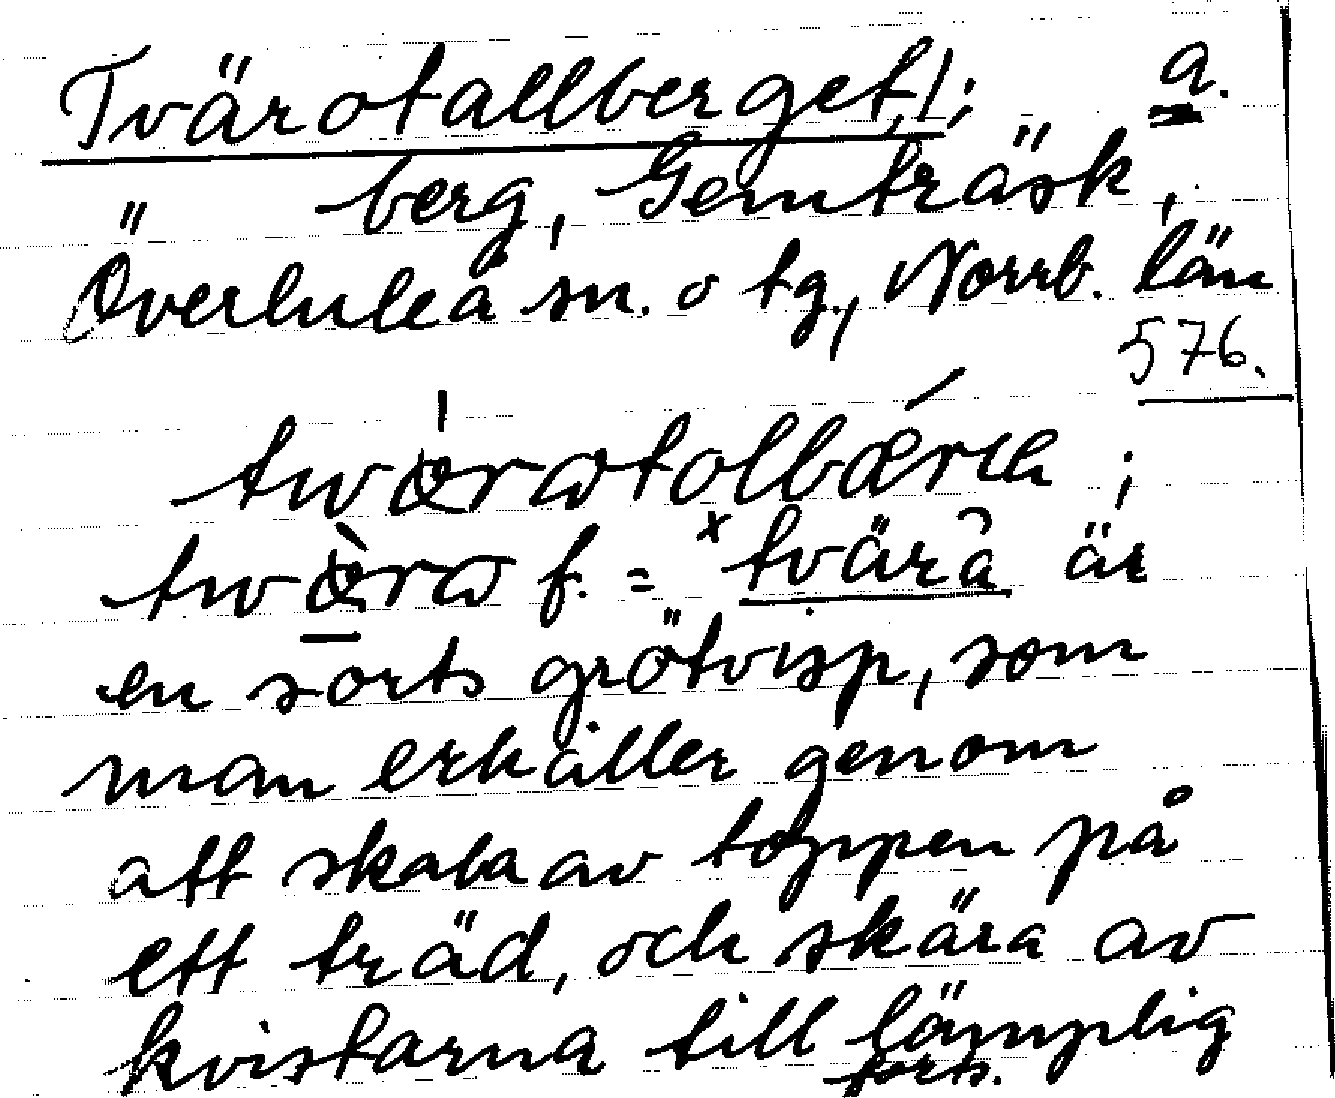 Tvärotallberget/; a.
berg, Gemträsk,
Överluleå sn. o tg., Norrb. län
576.
f. = ˣtvärâ är
en sorts grötvisp, som
man erhåller genom
att skala av toppen på
ett träd, och skära av
kvistarna till lämplig
forts.